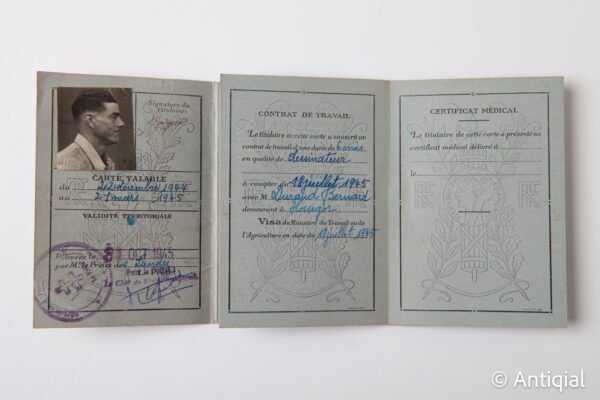 Signature du
Titulaire
CARTE VALABLE
du 26 décembre 1944
au 25 mars 1945
VALIDITÉ TERRITORIALE
Délivrée le 1945
par M. le Préfet des Landes
Pour le Préfet
Le Chef de Division
CONTRAT DE TRAVAIL
Le titulaire de cette carte a souscrit un
contrat de travail d'une durée de 6 mois
en qualité de dessinateur
à compter du 10 juillet 1945
avec M. Durand Bernard
demeurant à Hossegor
Visa du Ministre du Travail ou de
l'Agriculture en date du 10 juillet 1945
6
CERTIFICAT MÉDICAL
Le titulaire de cette carte a présenté un
certificat médical délivré à
le
© Antiqial